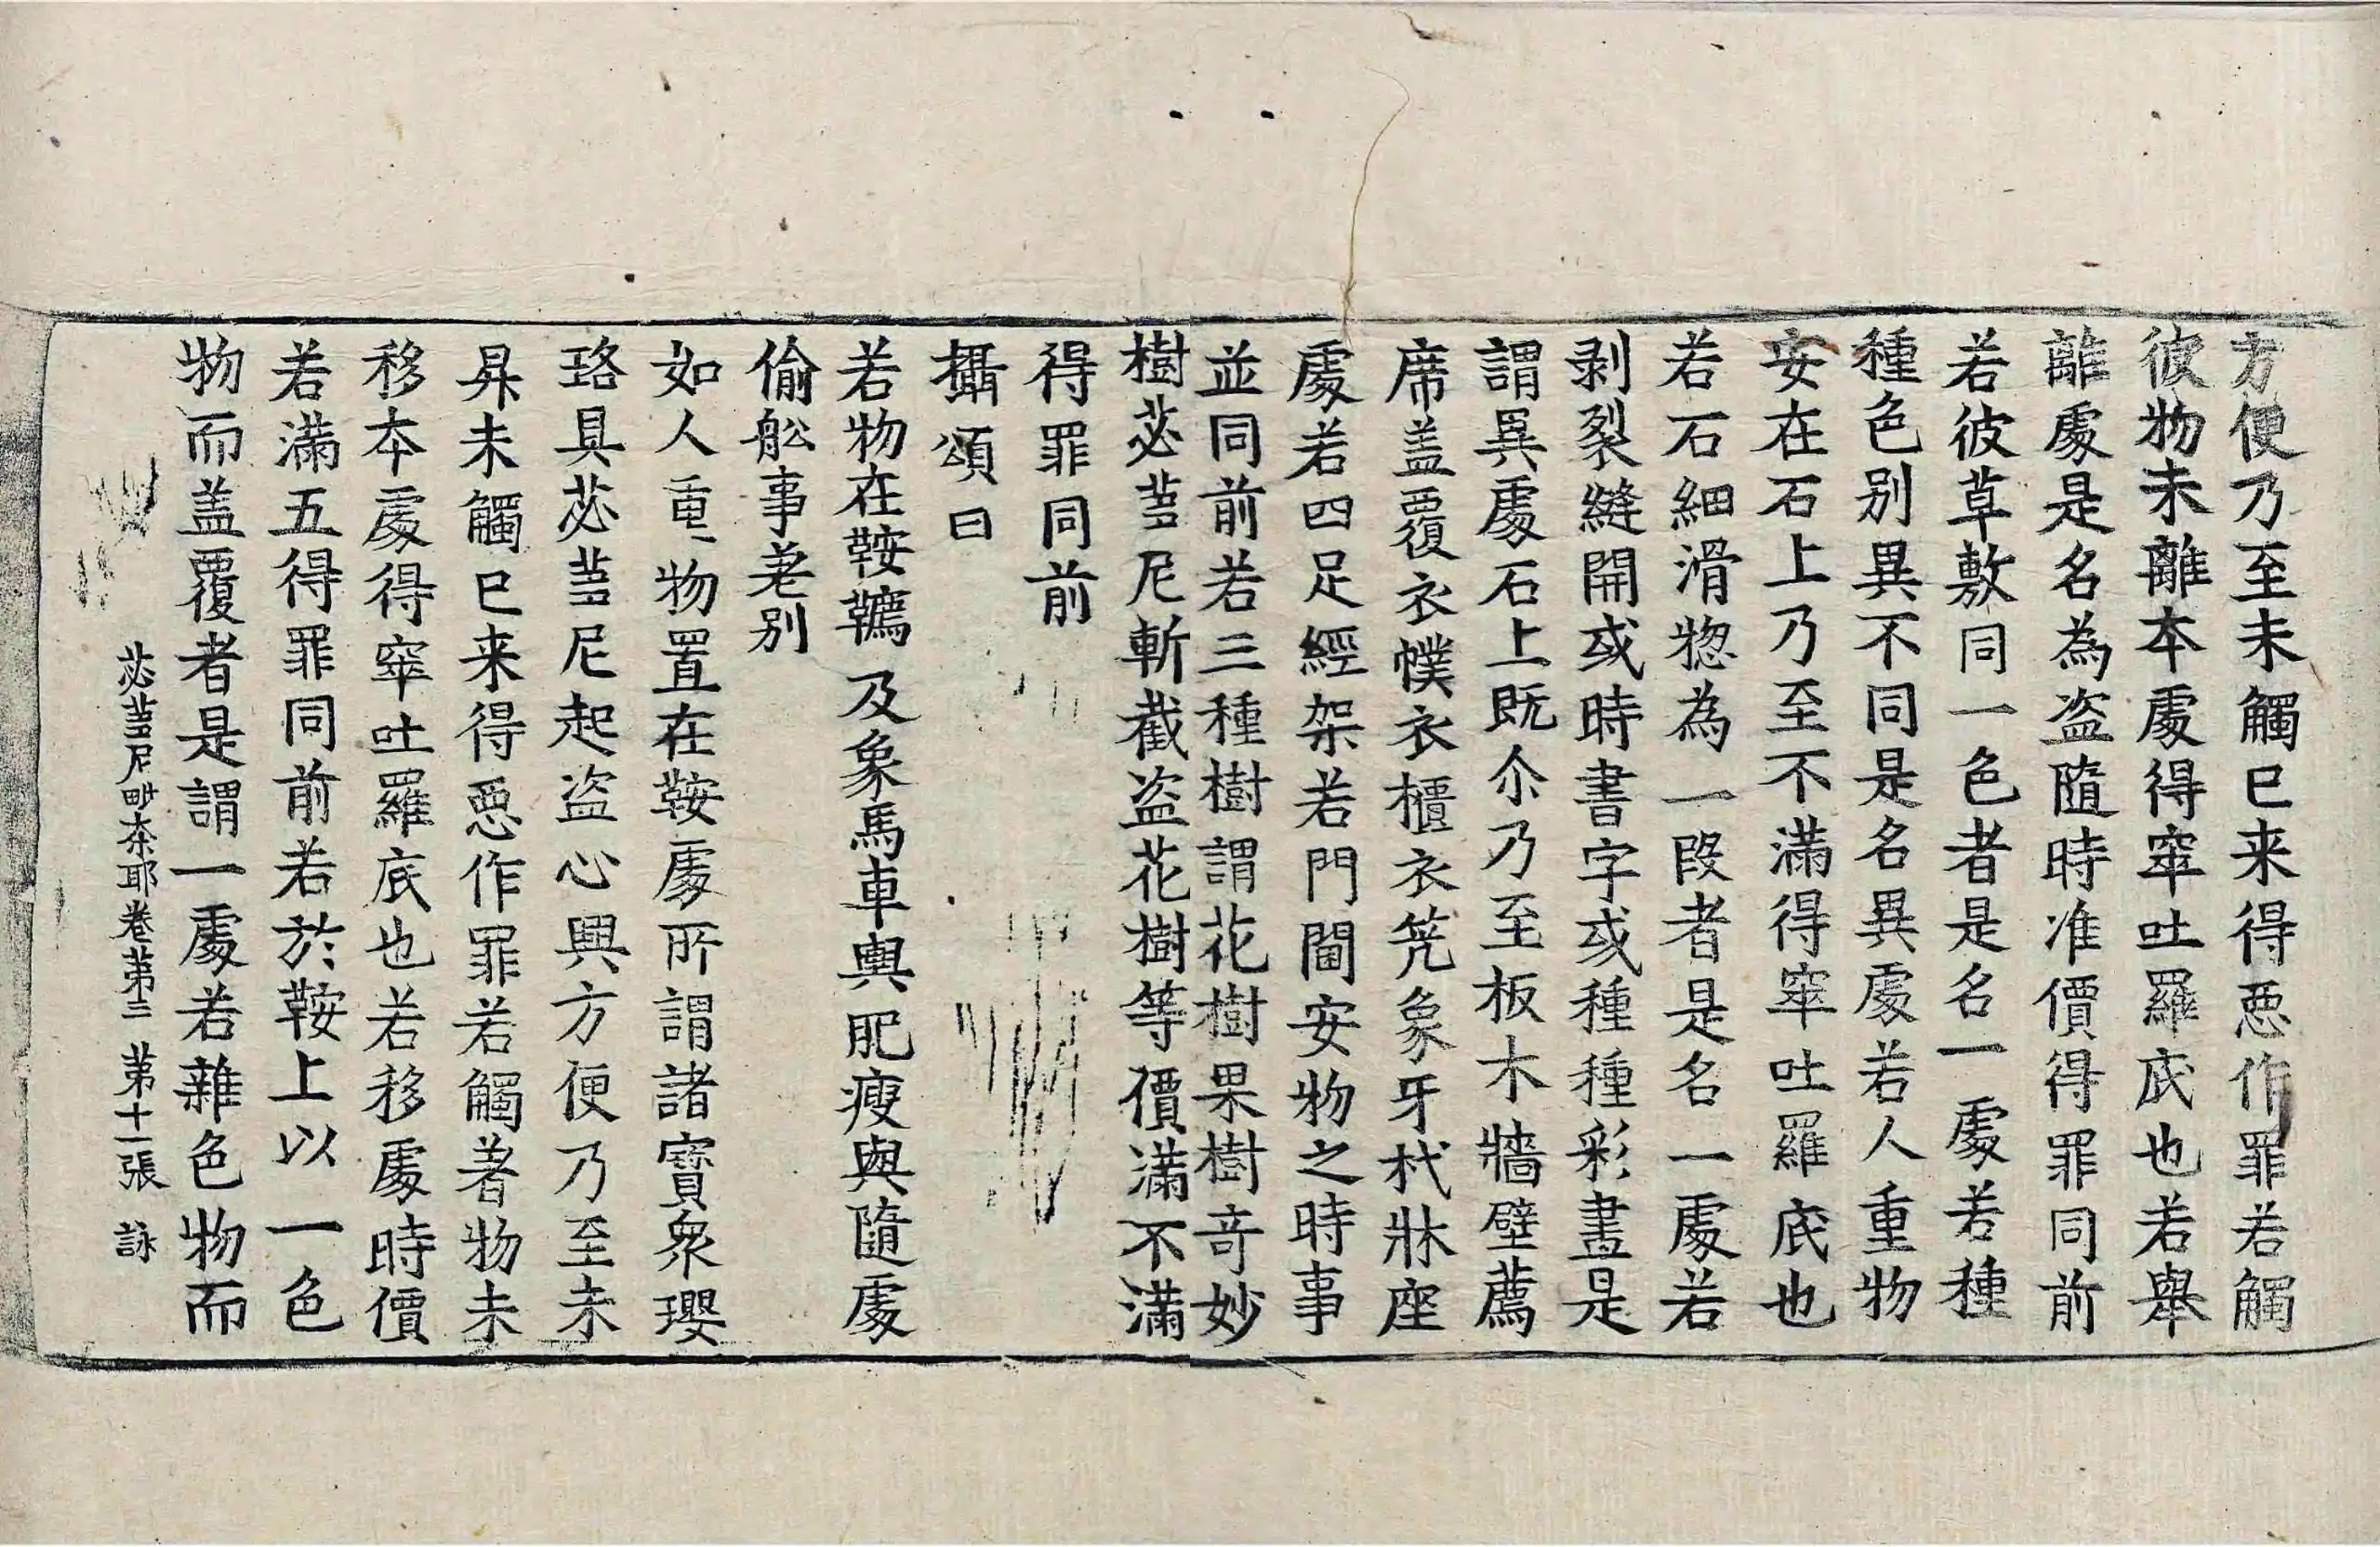 方便乃至未觸已来得惡作罪若觸
彼物未離本處得窣吐羅底也若舉
離處是名為盗隨時准價得罪同前
若彼草敷同一色者是名一處若種
種色别異不同是名異處若人重物
安在石上乃至不滿得窣吐羅底也
若石細滑惣為一段者是名一處若
剥裂縫開或時書字或種種彩畫是
謂異處石上既尒乃至板木牆壁薦
席盖覆衣幞衣櫃衣筅象牙杙牀座
處若四足經架若門閫安物之時事
並同前若三種樹謂花樹果樹奇妙
樹苾蒭尼斬截盗花樹等價滿不滿
得罪同前
攝頌曰
若物在鞍韉及象馬車輿肥瘦與隨處
偷舩事差别
如人重物置在鞍處所謂諸寶衆瓔
珞具苾蒭尼起盗心興方便乃至未
昇未觸已来得惡作罪若觸著物未
移本處得窣吐羅底也若移處時價
若滿五得罪同前若於鞍上以一色
物而盖覆者是謂一處若雜色物而
苾蒭尼毗奈耶卷第三 第十一張 詠